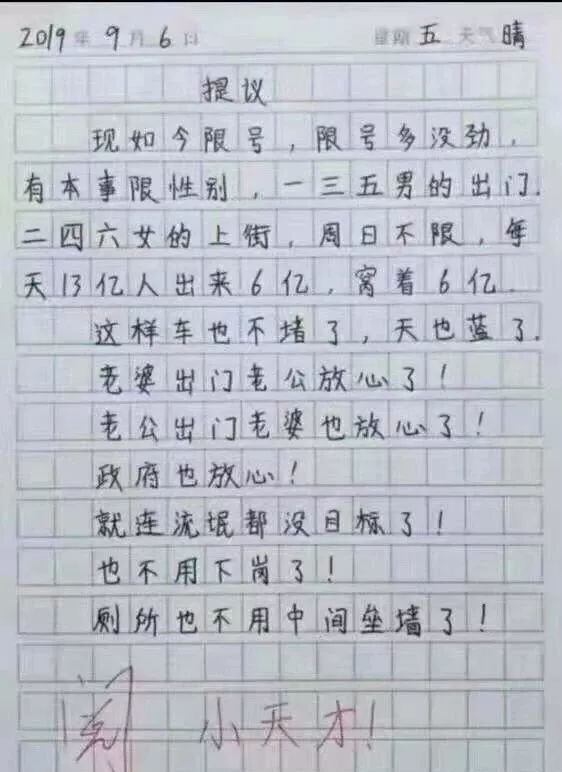 2019年9月6日 星期五 天气晴
提议
现如今限号，限号多没劲，
有本事限性别，一三五男的出门．
二四六女的上街，周日不限，每
天13亿人出来6亿，窝着6亿．
这样车也不堵了，天也蓝了．
老婆出门老公放心了！
老公出门老婆也放心了！
政府也放心！
就连流氓都没目标了！
也不用下岗了！
厕所也不用中间垒墙了！
阅 小天才！